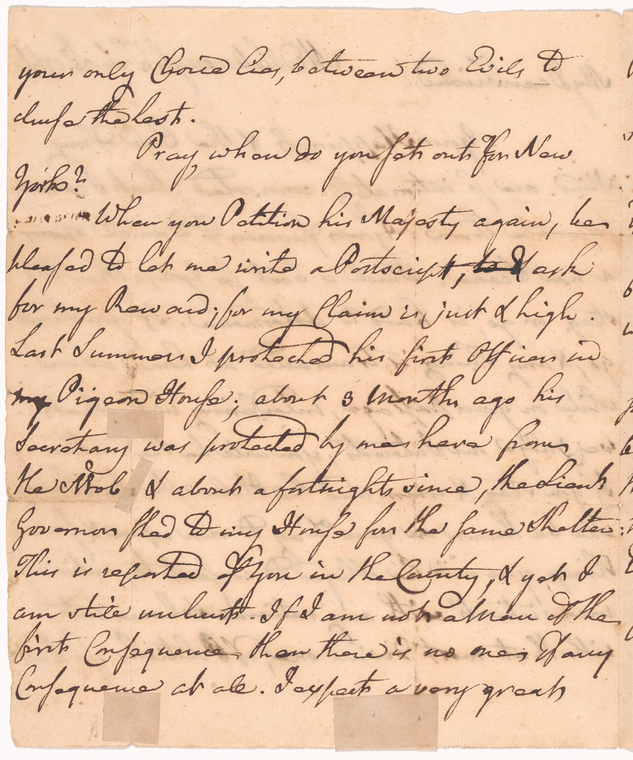 your only Choice lies, between two Evils to
chuse the least.
Pray, when do you set out for New
York?
When you Petition his Majesty again, be
pleased to let me write a Postscript, to & ask
for my Reward; for my Claim is just & high.
Last Summer I protected his first Officer in
my Pigeon House; about 3 Months ago his
Secretary was protected by me here from
the Mob & about a fortnight since, the Lieut
Governor fled to my House for the same Shelter:
This is reported of you in the County, & yet I
am still unhurt. If I am not a Man of the
first Consequence, then there is no one of any
Consequence at all. I expect a very great